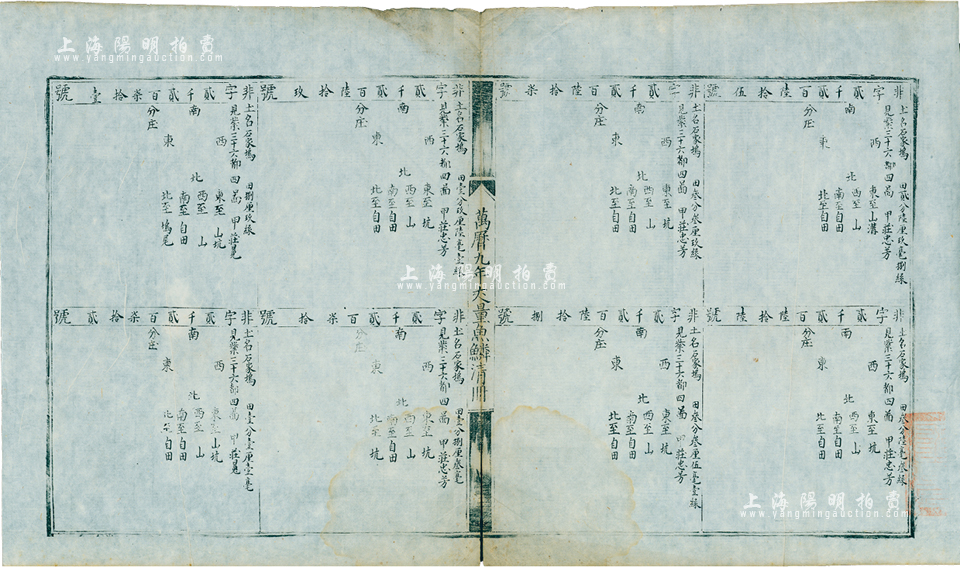 非字貳千貳百陸拾伍號
土名石家塢 田貳分陸厘玖毫捌絲
見業三十六都四啚 甲莊忠芳
東至山溝
西至山
南至自田
北至自田
南
西
北
東
分庄
非字貳千貳百陸拾柒號
土名石家塢 田叁分叁厘玖絲
見業三十六都四啚 甲莊忠芳
東至坑
西至山
南至自田
北至自田
南
西
北
東
分庄
非字貳千貳百陸拾陸號
土名石家塢 田叁分陸毫叁絲
見業三十六都四啚 甲莊忠芳
東至坑
西至山
南至自田
北至自田
南
西
北
東
分庄
非字貳千貳百陸拾捌號
土名石家塢 田叁分叁厘伍毫壹絲
見業三十六都四啚 甲莊忠芳
東至坑
西至山
南至自田
北至自田
南
西
北
東
分庄
萬曆九年丈量魚鱗清冊
非字貳千貳百陸拾玖號
土名石家塢 田壹分玖厘陸毫壹絲
見業三十六都四啚 甲莊忠芳
東至坑
西至山
南至自田
北至自田
南
西
北
東
分庄
非字貳千貳百柒拾壹號
土名石家塢 田捌厘玖絲
見業三十六都四啚 甲莊晃
東至山坑
西至山
南至自田
北至塢尾
南
西
北
東
分庄
非字貳千貳百柒拾號
土名石家塢 田壹分捌厘叁毫
見業三十六都四啚 甲莊忠芳
東至坑
西至山
南至自田
北至坑
南
西
北
東
分庄
非字貳千貳百柒拾貳號
土名石家塢 田壹分壹厘壹毫
見業三十六都四啚 甲莊晃
東至山坑
西至山
南至自田
北至自田
南
西
北
東
分庄
上海陽明拍賣
www.yangmingauction.com
上海陽明拍賣
www.yangmingauction.com
上海陽明拍賣
www.yangmingauction.com
上海陽明拍賣
www.yangmingauction.com